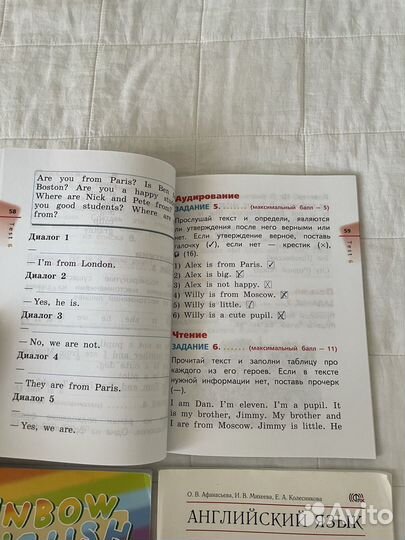 Are you from Paris? Is Ben
Boston? Are you a happy
Where are Nick and Pete from?
you good students? Where are
from?
58
Tests
Диалог 1
—
— I'm from London.
Диалог 2
—
— Yes, he is.
Диалог 3
—
— No, we are not.
Диалог 4
—
— They are from Paris.
Диалог 5
—
— Yes, we are.
Аудирование
ЗАДАНИЕ 5. (максимальный балл — 5)
Прослушай текст и определи, являются
ли утверждения после него верными или
нет. Если утверждение верное, поставь
галочку (✓), если нет — крестик (×).
(16).
1) Alex is from Paris. ✓
2) Alex is big.
3) Alex is not happy.
4) Willy is from Moscow.
5) Willy is little. ✓
6) Willy is a cute pupil.
59
Tests
Чтение
ЗАДАНИЕ 6. (максимальный балл — 11)
Прочитай текст и заполни таблицу про
каждого из его героев. Если в тексте
нужной информации нет, поставь прочерк
(—).
I am Dan. I'm eleven. I'm a pupil. It
is my brother, Jimmy. My brother and
I are from Moscow. Jimmy is little. He
О. В. Афанасьева, И. В. Михеева, Е. А. Колесникова
АНГЛИЙСКИЙ ЯЗЫК
Avito